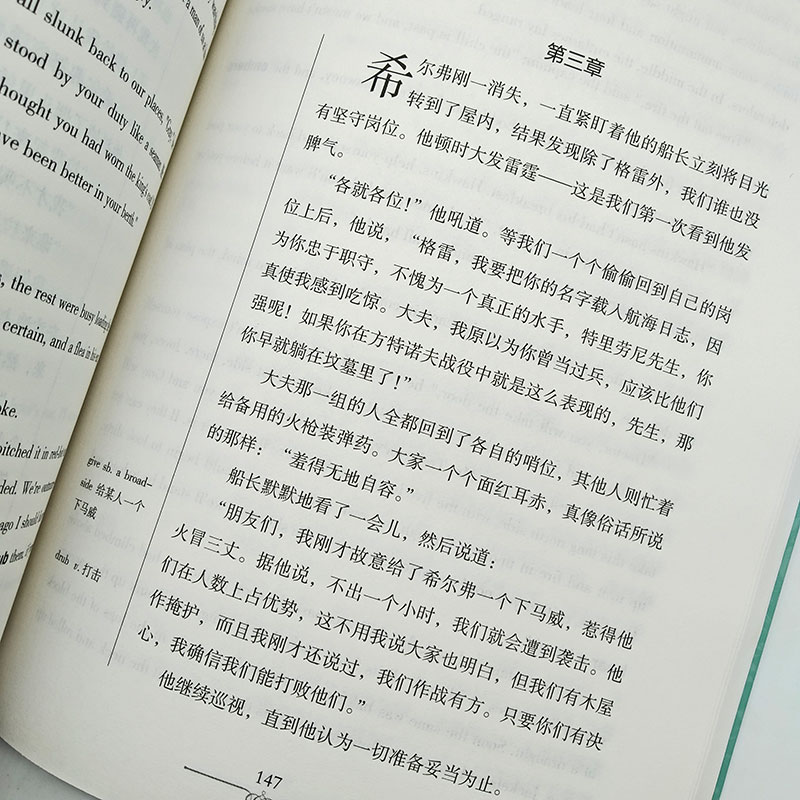 all slunk back to our places,
stood by your duty like a seaman
thought you had worn the king's
have been better in your berth."
the rest were busy loading
certain, and a flea in his
pitched it in red-hot
ago I should
第三章
希尔弗刚一消失，一直紧盯着他的船长立刻将目光
转到了屋内，结果发现除了格雷外，我们谁也没
有坚守岗位。他顿时大发雷霆——这是我们第一次看到他发
脾气。
“各就各位！”他吼道。等我们一个个偷偷回到自己的岗
位上后，他说，“格雷，我要把你的名字载入航海日志，因
为你忠于职守，不愧为一个真正的水手，特里劳尼先生，你
真使我感到吃惊。大夫，我原以为你曾当过兵，应该比他们
强呢！如果你在方特诺夫战役中就是这么表现的，先生，那
你早就躺在坟墓里了！”
大夫那一组的人全都回到了各自的哨位，其他人则忙着
给备用的火枪装弹药。大家一个个面红耳赤，真像俗话所说
的那样：“羞得无地自容。”
船长默默地看了一会儿，然后说道：
“朋友们，我刚才故意给了希尔弗一个下马威，惹得他
火冒三丈。据他说，不出一个小时，我们就会遭到袭击。他
们在人数上占优势，这不用我说大家也明白，但我们有木屋
作掩护，而且我刚才还说过，我们作战有方。只要你们有决
心，我确信我们能打败他们。”
他继续巡视，直到他认为一切准备妥当为止。
give sb. a broad-
side 给某人一个
下马威
drub v. 打击
147